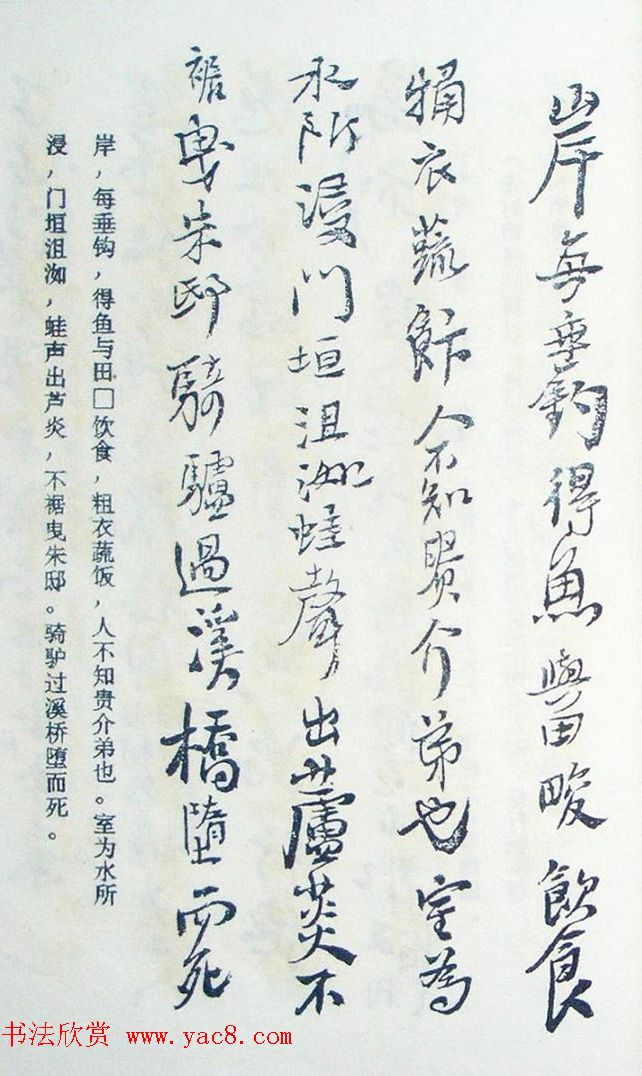 岸每垂釣得魚與田畯飲食
犕衣蔬飰人不知贵介弟也室為
水所浸門垣沮洳蛙聲出蘆葖不
裾曳朱邸騎驢過溪橋墮而死
岸，每垂钩，得鱼与田□饮食，粗衣蔬饭，人不知贵介弟也。室为水所
浸，门垣沮洳，蛙声出芦炎，不裾曳朱邸。骑驴过溪桥堕而死。
书法欣赏 www.yac8.com